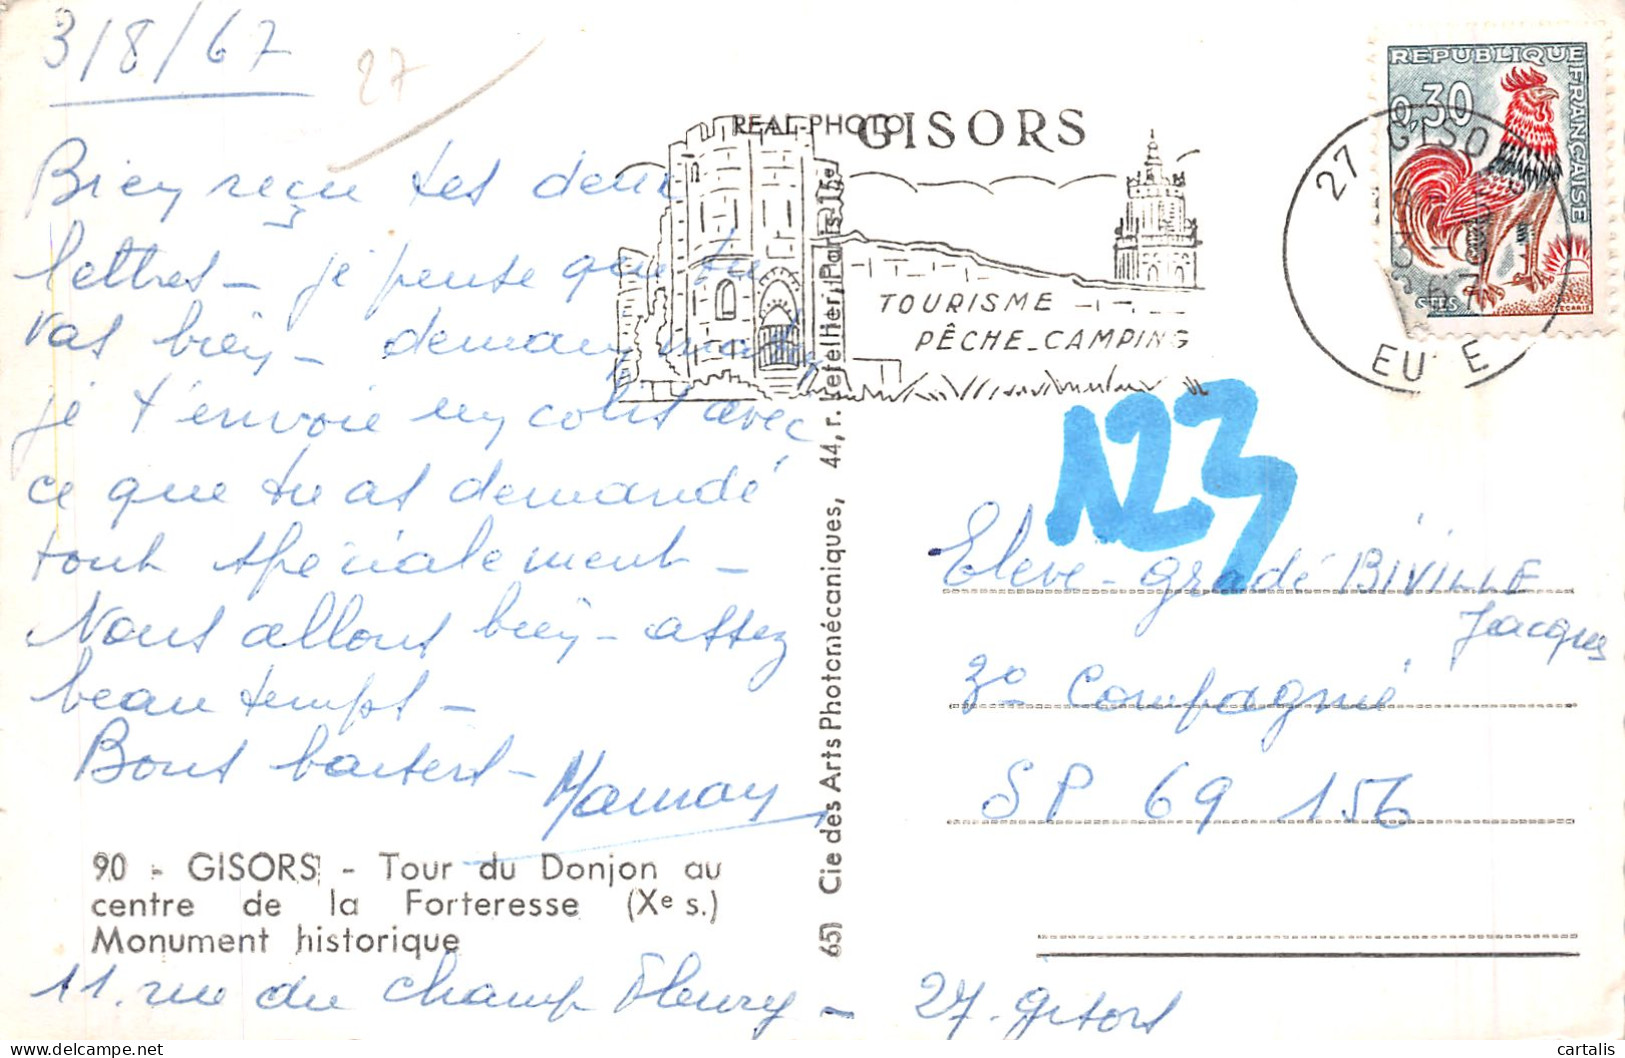 3/8/67
27
Bien reçu tes deux
lettres - je pense que tu
vas bien - demain matin
je t'envoie un colis avec
ce que tu as demandé
tout spécialement -
Nous allons bien - assez
beau temps -
Bons baisers -
Maman
90 - GISORS - Tour du Donjon au
centre de la Forteresse (Xe s.)
Monument historique
11. rue du Champ Fleury - 27. Gisors
REAL-PHOTO
651 Cie des Arts Photomécaniques, 44, r. Letellier, Paris-15e
GISORS
TOURISME
PÊCHE_CAMPING
REPUBLIQUE FRANÇAISE
0,30
27 GISORS
EURE
123
Eleve - gradé BIVILLE
Jacques
3e Compagnie
SP 69 156
cartalis